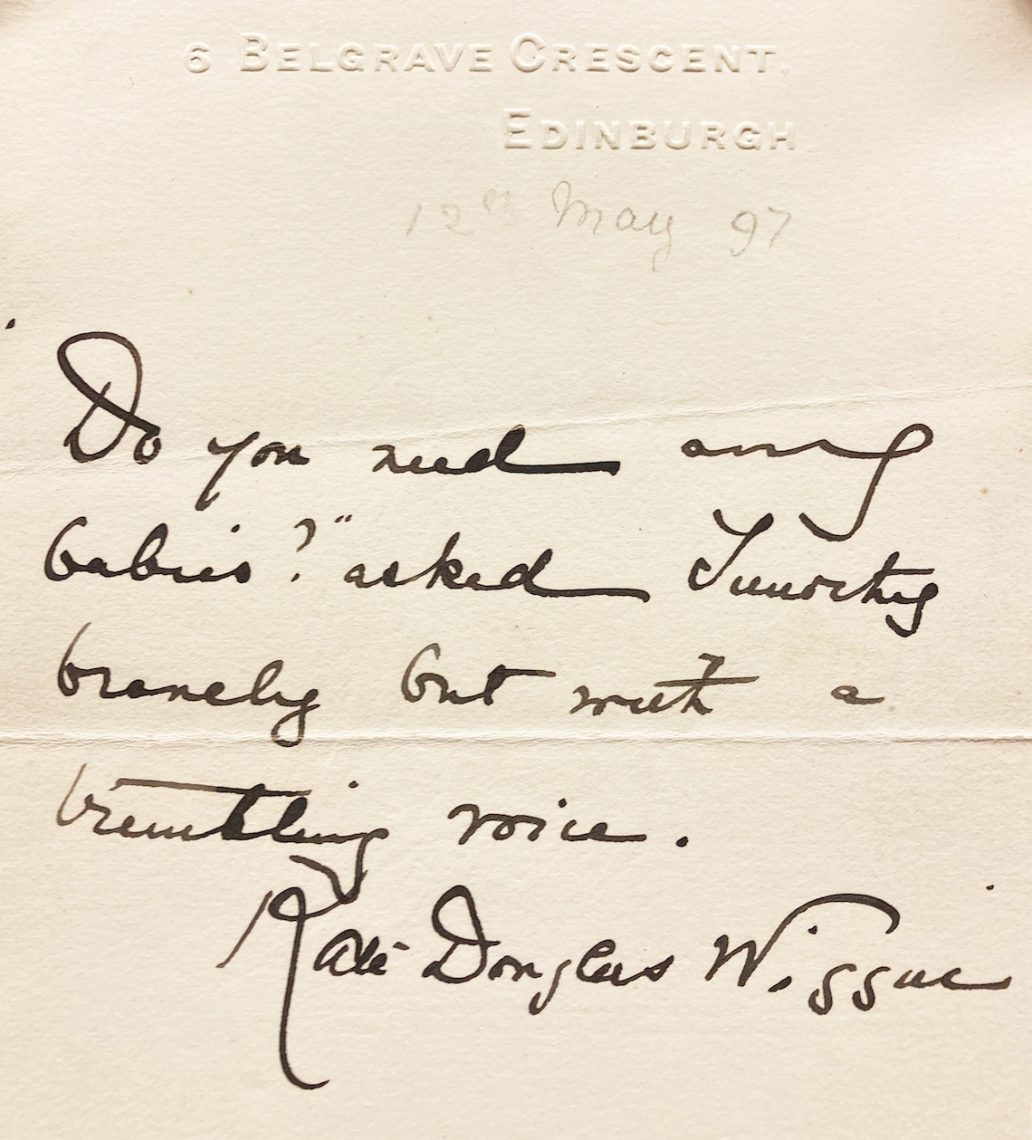 6 BELGRAVE CRESCENT,
EDINBURGH
12th May 97
Do you need any
babies?" asked Timothy
bravely but with a
trembling voice.
Kate Douglas Wiggin